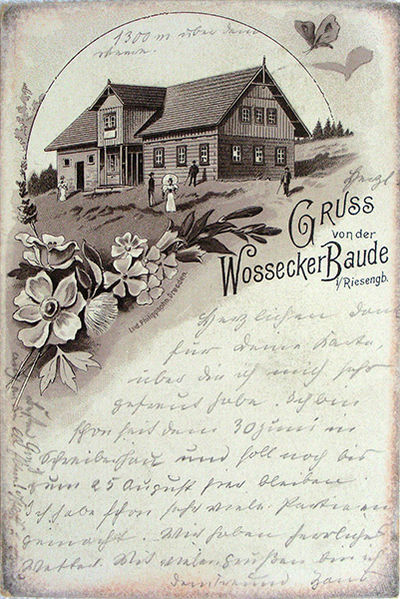 1300 m über dem
Meere.
GRUSS
von der
Wossecker Baude
i/Riesengb.
Lith. Philipp
Dresden.
Herzl
Herzlichen Dank
für deine Karte,
über die ich mich sehr
gefreut habe. Ich bin
schon seit dem 30 Juni in
Schreiberhau und soll noch bis
zum 25 August hier bleiben.
Ich habe schon sehr viele Partieen
gemacht. Wir haben herrliches
Wetter. Mit vielen Grüßen bin ich
dein Freund Hans